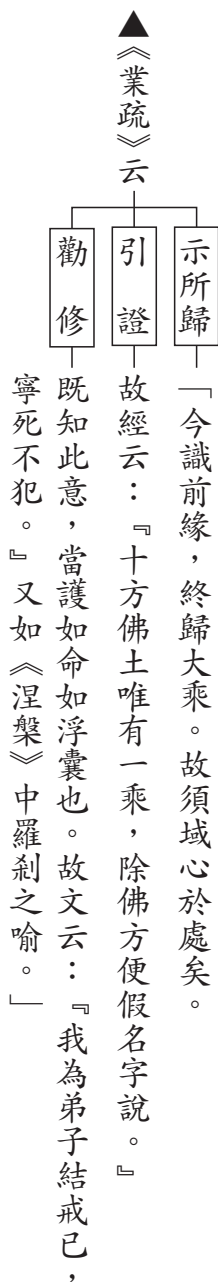 ▲《業疏》云
示所歸
「今識前緣,終歸大乘。故須域心於處矣。
引證
故經云:『十方佛土唯有一乘,除佛方便假名字說。』
勸修
既知此意,當護如命如浮囊也。故文云:『我為弟子結戒已,
寧死不犯。』又如《涅槃》中羅剎之喻。」